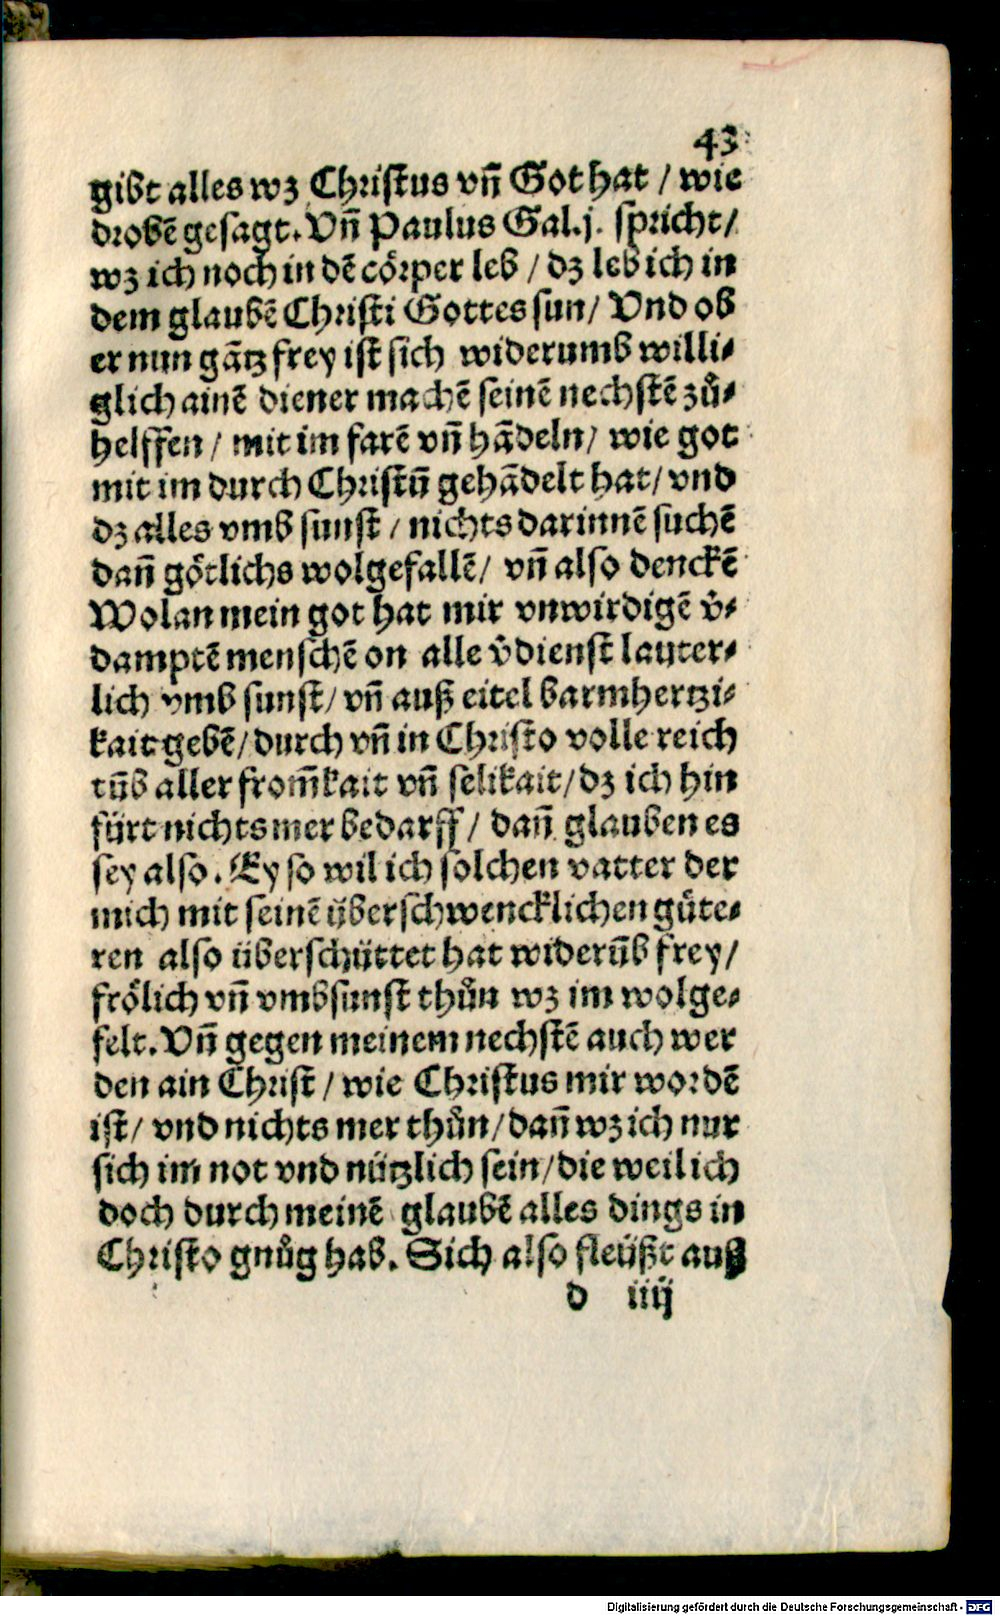 43
gibt alles wz Christus vñ Got hat / wie
drobẽ gesagt. Vñ Paulus Gal.j. spricht /
wz ich noch in dẽ cörper leb / dz leb ich in
dem glaubẽ Christi Gottes sun / Vnd ob
er nun gãtz frey ist sich widerumb willi⸗
glich ainẽ diener machẽ seinẽ nechstẽ zů⸗
helffen / mit im farẽ vñ hãdeln / wie got
mit im durch Christũ gehãdelt hat / vnd
dz alles vmb sunst / nichts darinnẽ suchẽ
dañ götlichs wolgefallẽ / vñ also denckẽ
Wolan mein got hat mir vnwirdigẽ v̂⸗
damptẽ menschẽ on alle v̂dienst lauter⸗
lich vmb sunst / vñ auß eitel barmhertzi⸗
kait gebẽ / durch vñ in Christo volle reich
tũb aller from̃kait vñ selikait / dz ich hin
fürt nichts mer bedarff / dañ glauben es
sey also. Ey so wil ich solchen vatter der
mich mit seinẽ überschwencklichen güte⸗
ren also überschüttet hat widerũb frey /
frölich vñ vmbsunst thůn wz im wolge⸗
felt. Vñ gegen meinem nechstẽ auch wer
den ain Christ / wie Christus mir wordẽ
ist / vnd nichts mer thůn / dañ wz ich nur
sich im not vnd nützlich sein / die weil ich
doch durch meinẽ glaubẽ alles dings in
Christo gnůg hab. Sich also fleüßt auß
d iiij
Digitalisierung gefördert durch die Deutsche Forschungsgemeinschaft - DFG